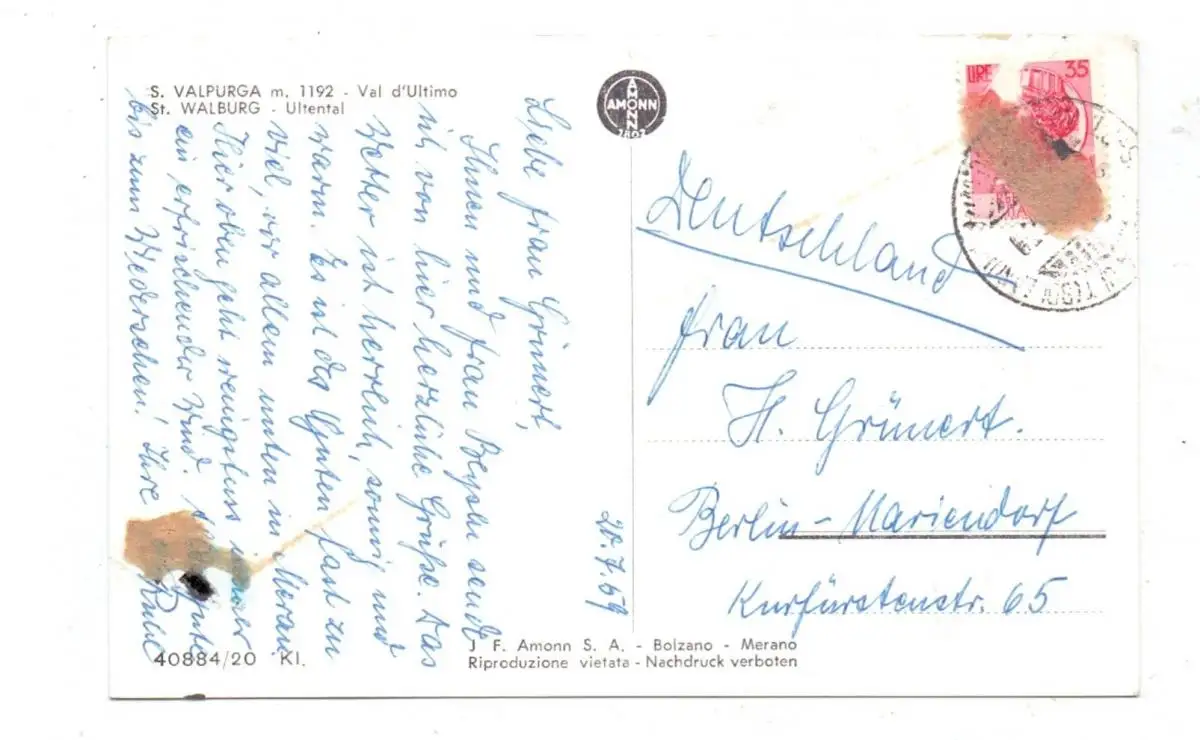 S. VALPURGA m. 1192 - Val d'Ultimo
St. WALBURG - Ultental
20.7.59
Liebe Frau Grünert,
Ihnen und Frau sendt
ich von hier herzliche Grüße. Das
Wetter ist herrlich, sonnig und
warm. Es ist des Guten fast zu
viel, vor allem unten in Meran.
Hier oben geht wenigstens immer
ein erfrischender Wind. Gute
bis zum Wiedersehen! Ihre
40884/20 Kl.
J F. Amonn S. A. - Bolzano - Merano
Riproduzione vietata - Nachdruck verboten
AMONN
AMONN
1802
LIRE 35
Deutschland
Frau
H. Grünert.
Berlin-Mariendorf
Kurfürstenstr. 65